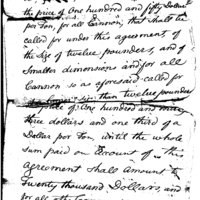 the price of One hundred and fifty Dollars
per ton, for all dimensions, that shall be
called for under this agreement of
the Size of twelve pounders, and of
Smaller dimensions and for all
Cannon so as aforesaid called for
of a larger size than twelve pounders
of One hundred and
three dollars and one third of a
Dollar per ton, until the whole
sum paid on Amount of this
Agreement shall Amount to
twenty thousand Dollars, and
for all